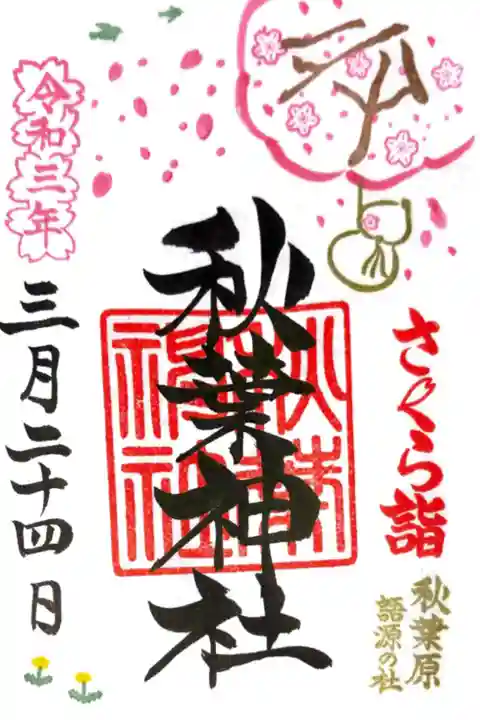 さくら詣
秋葉原
語源の社
秋葉神社
令和三年
三月二十四日